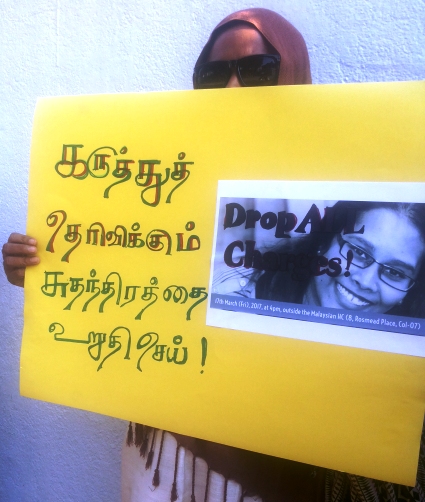 கருத்துத்
தெரிவிக்கும்
சுதந்திரத்தை
உறுதி செய் !
Drop ALL
Charges!
17th March (Fri), 2017, at 4pm, outside the Malaysian HC (8, Rosmead Place, Col-07)